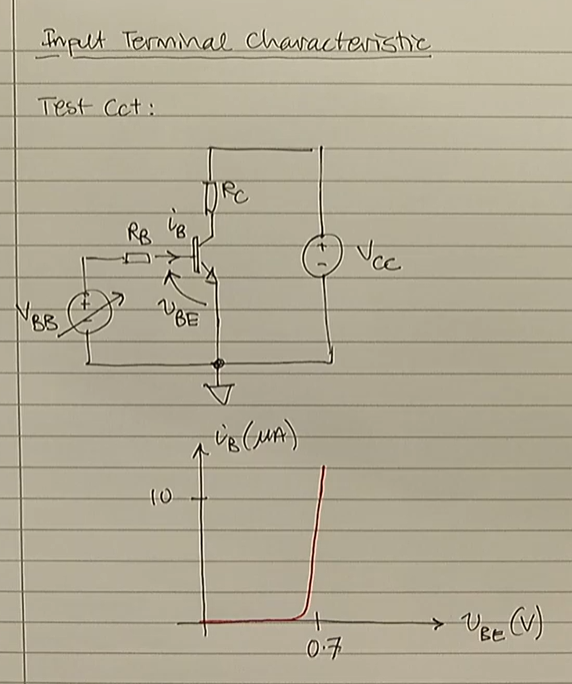 Input Terminal Characteristic
Test Cct:
RC
RB
iB
+
-
VCC
VBB
+
-
vBE
iB(μA)
10
0.7
vBE(V)